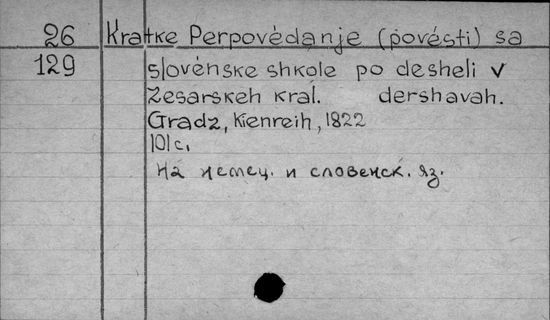 26 Kratke Perpovédanje (povésti) sa
129 slovénske shkole po desheli v
Zesarskeh kral. dershavah.
Gradz, Kienreih, 1822
101 с.
На немец. и словенск. яз.